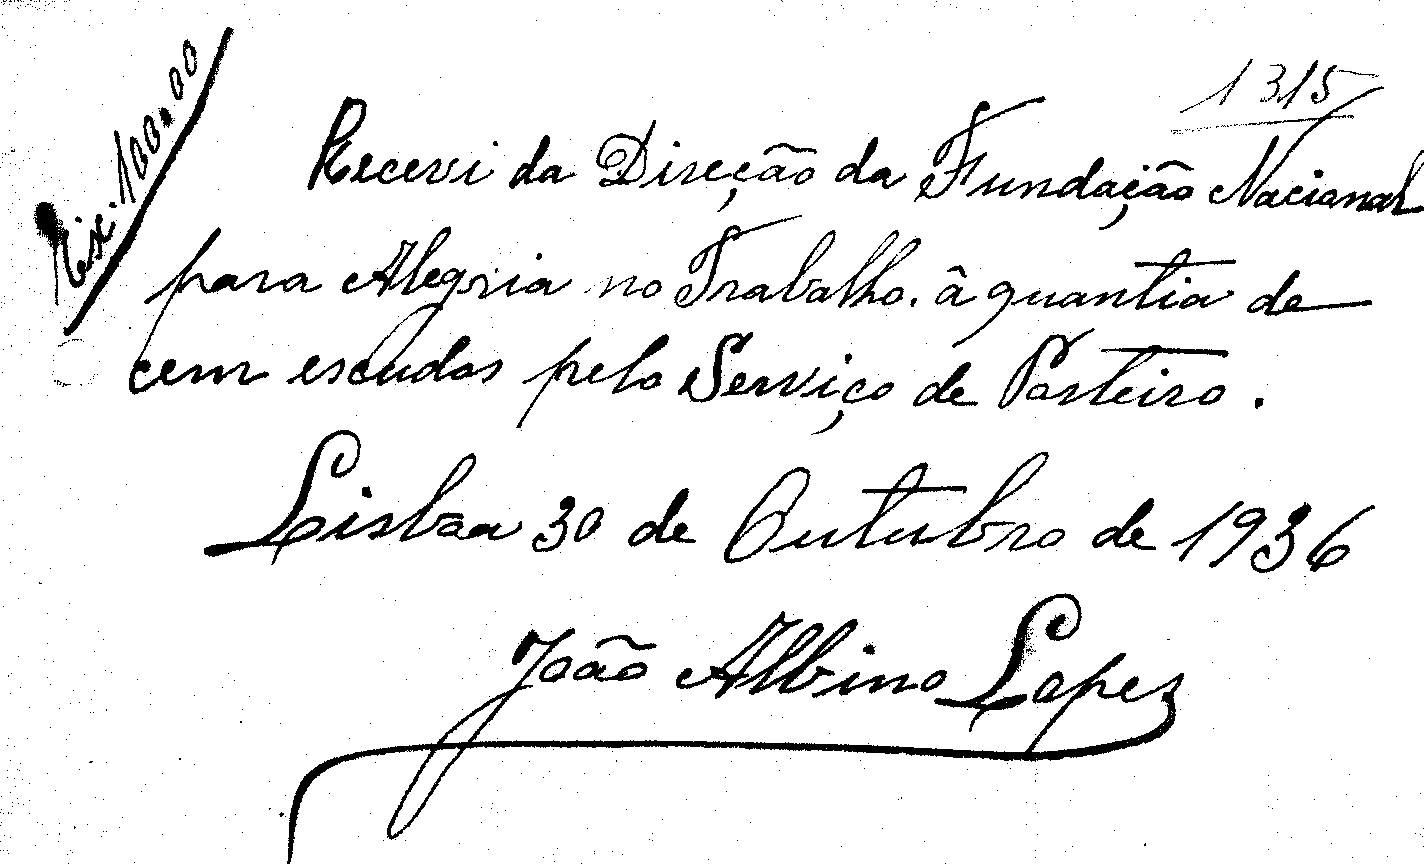 1315
100.00
Recevi da Direção da Fundação Nacional
para Alegria no Trabalho. â quantia de
cem escudos pelo Serviço de Porteiro.
Lisboa 30 de Outubro de 1936
João Albino Lopes